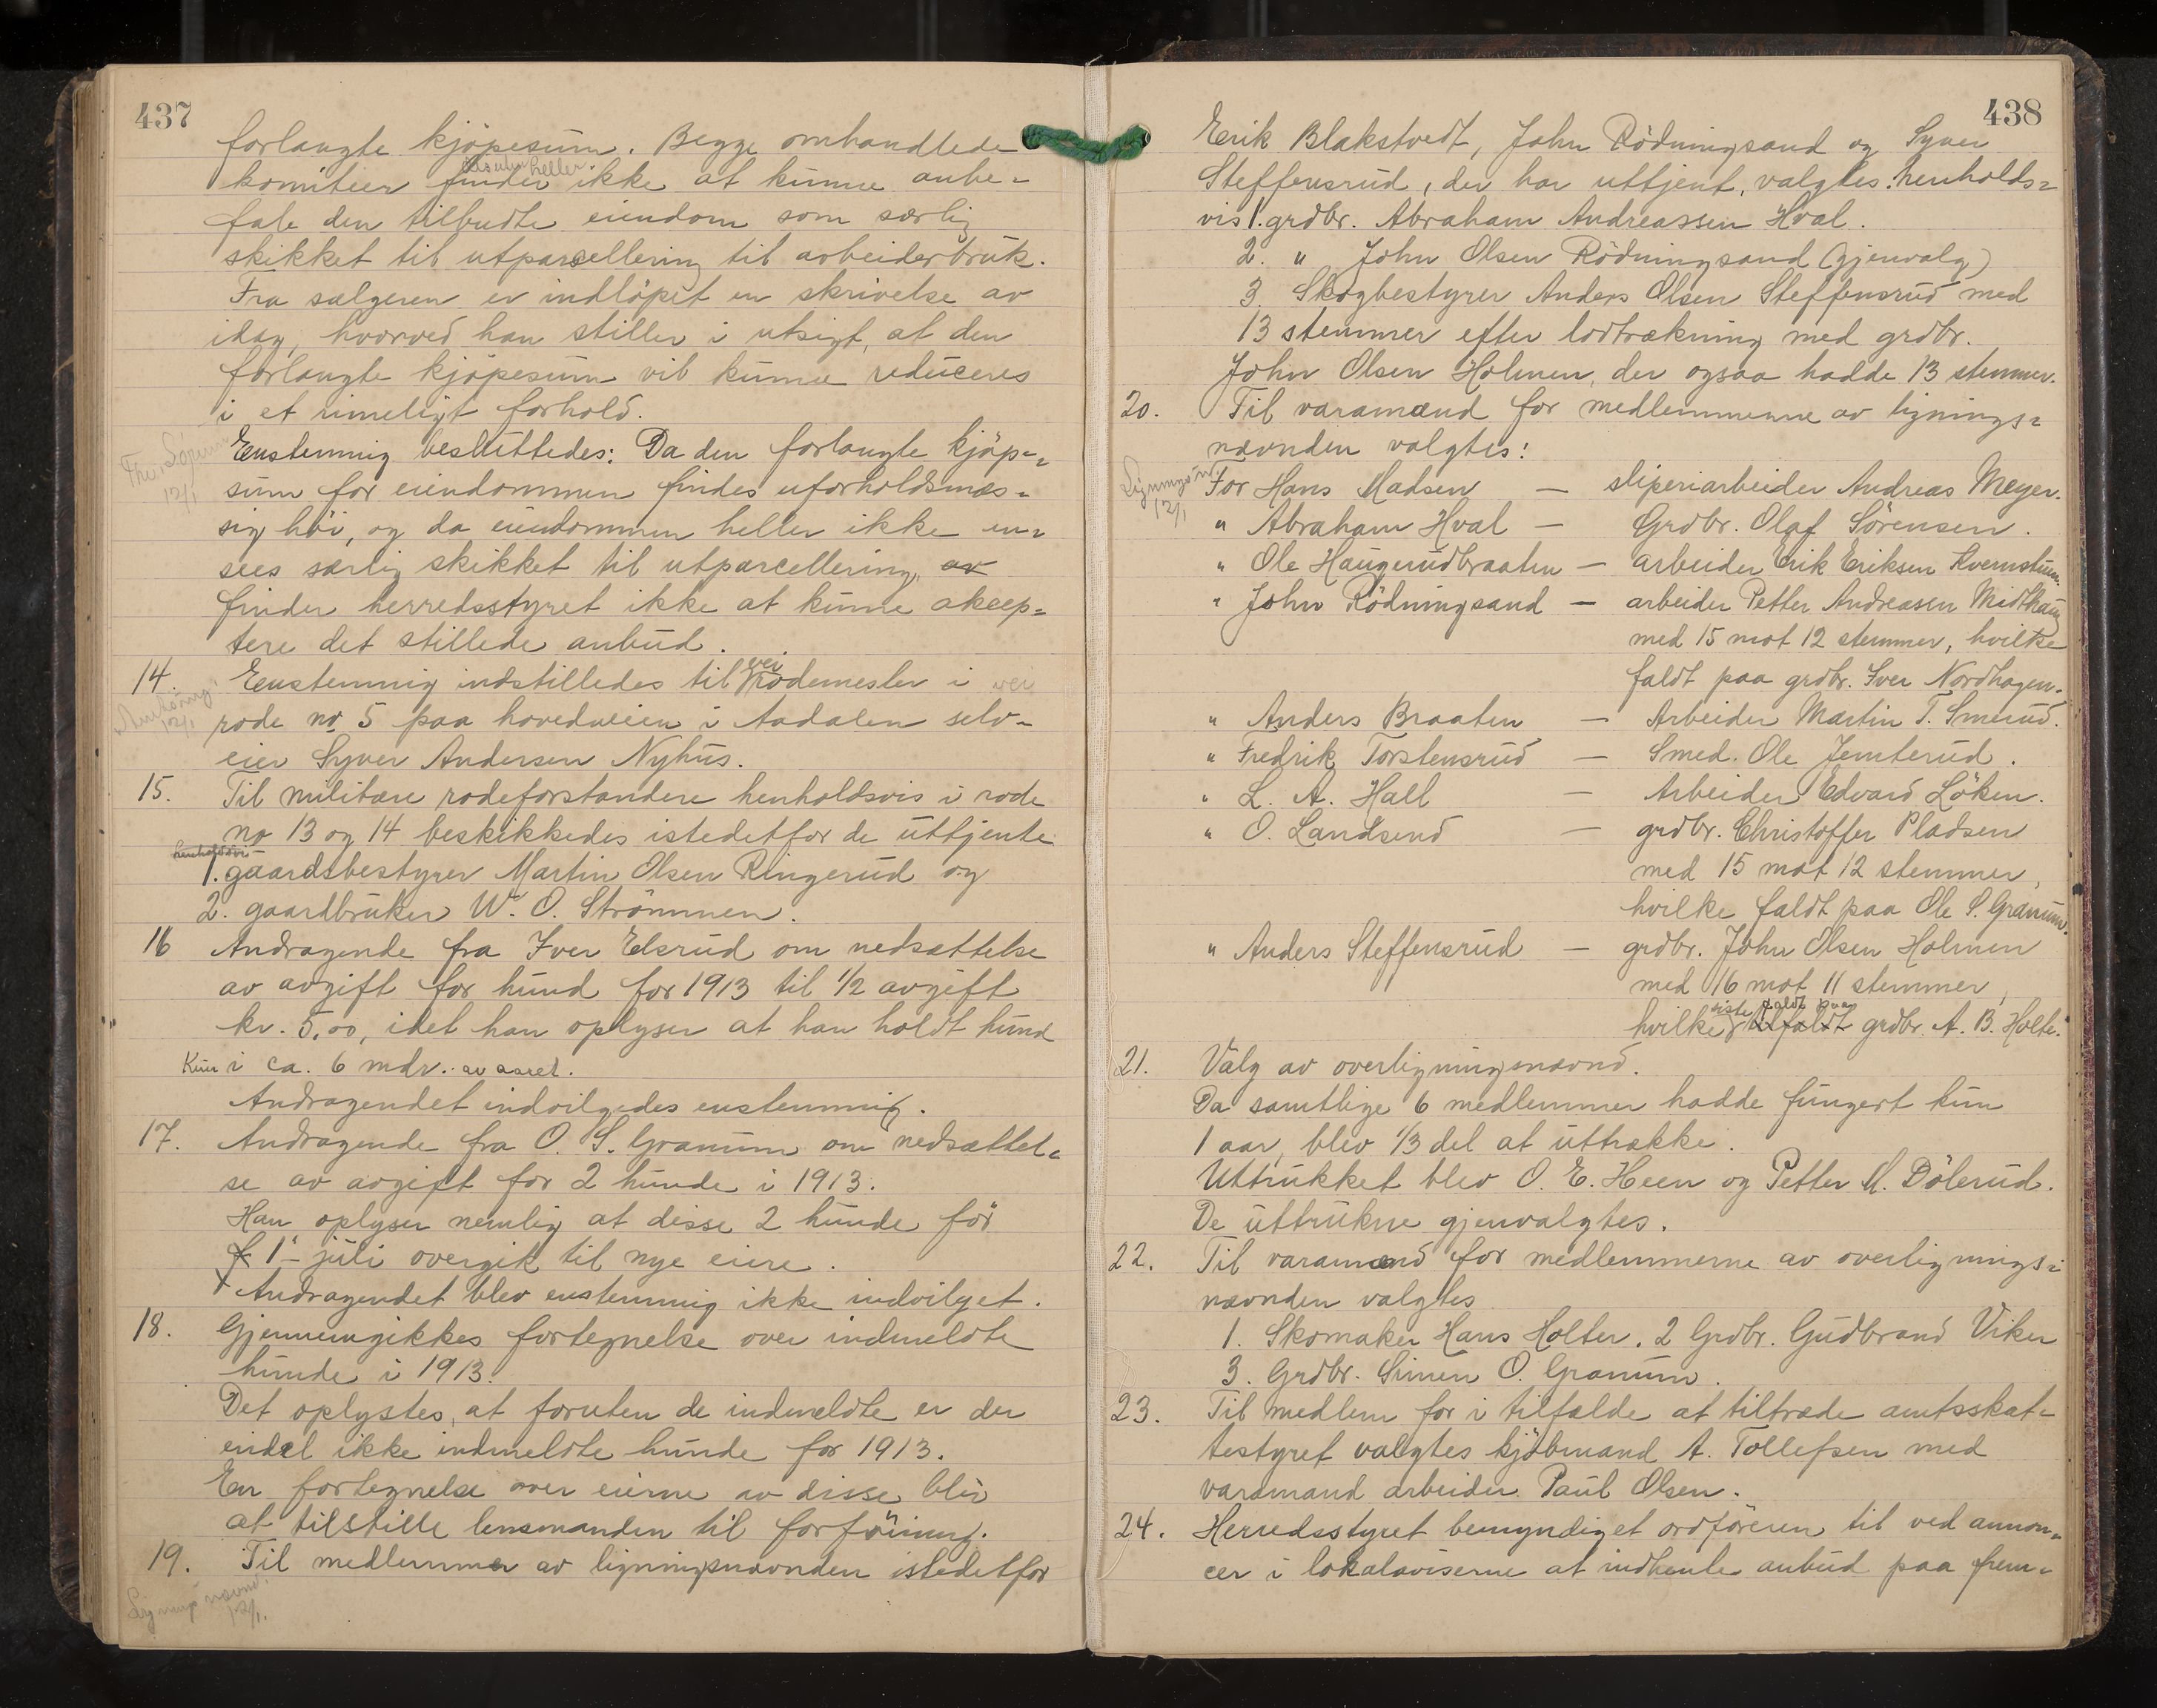 437
forlangte kjöpesum. Begge omhandlede
komiteer finder heller ikke at kunne anbe-
fale den tilbudte eiendom som særlig
skikket til utparcellering til arbeiderbruk.
Fra sælgeren er indlöpet en skrivelse av
idag, hvorved han stiller i utsigt, at den
forlangte kjöpesum vil kunne reduceres
i et rimeligt forhold.
Enstemmig besluttedes: Da den forlangte kjöp=
12/1
sum for eiendommen findes uforholdsmæs=
sig höi, og da eiendommen heller ikke an=
sees særlig skikket til utparcellering, av
finder herredsstyret ikke at kunne aksep=
tere det stillede anbud.
14. Enstemmig indstilledes til veirodemester i
12/1
rode no 5 paa hovedveien i Aadalen selv-
eier Syver Andersen Nyhus.
15. Til militære rodeforstandere henholdsvis i rode
no 13 og 14 beskikkedes istedetfor de uttjente
henholdsvis
1. gaardsbestyrer Martin Olsen Ringerud og
2. gaardbruker W. O. Strömmen.
16 Andragende fra Iver Elsrud om nedsættelse
av avgift for hund for 1913 til 1/2 avgift
kr. 5.00, idet han oplyser at han holdt hund
Kun i ca. 6 mdr. av aaret.
Andragendet indvilgedes enstemmig.
17. Andragende fra O. S. Granum om nedsættel=
se av avgift for 2 hunde i 1913.
Han oplyser nemlig at disse 2 hunde för
1ste juli overgik til nye eiere.
Andragendet blev enstemmig ikke indvilget.
18. Gjennemgikkes fortegnelse over indmeldte
hunde i 1913.
Det oplystes, at foruten de indmeldte er der
endel ikke indmeldte hunde for 1913.
En fortegnelse over eierne av disse blir
at tilstille lensmanden til forföining.
19. Til medlemmer av ligningsnævnden istedetfor
Lignings nævnd.
12/1.
438
Erik Blakstvedt, John Rödningsand og Syver
Steffensrud, der har uttjent, valgtes: henholds=
vis 1. grdbr. Abraham Andreassen Hval.
2. " John Olsen Rödningsand (gjenvalg)
3. Skogbestyrer Anders Olsen Steffensrud med
13 stemmer efter lodtrækning med grdbr.
John Olsen Holmen, der ogsaa hadde 13 stemmer.
20. Til varamænd for medlemmerne av lignings=
nævnden valgtes:
12/1
For Hans Madsen — sliperiarbeider Andreas Meyer.
" Abraham Hval — Grdbr. Olaf Sörensen.
" Ole Haugerudbraaten — arbeider Erik Eriksen
" John Rödningsand — arbeider Petter Andreasen Midthaug
med 15 mot 12 stemmer, hvilke
faldt paa grdbr. Iver Nordhagen.
" Anders Braaten — Arbeider Martin T. Smerud.
" Fredrik Torstensrud — Smed. Ole Jemterud.
" L. A. Hall — Arbeider Edvard Löken.
" O. Landsend — grdbr. Christoffer Pladsen
med 15 mot 12 stemmer,
hvilke faldt paa Ole S. Granum.
" Anders Steffensrud — grdbr. John Olsen Holmen
med 16 mot 11 stemmer,
hvilke siste faldt paa grdbr. A. B. Holte.
21. Valg av overligningsnævnd.
Da samtlige 6 medlemmer hadde fungert kun
1 aar, blev 1/3 del at uttrække.
Uttrukket blev O. E. Heen og Petter M. Dölerud.
De uttrukne gjenvalgtes.
22. Til varamænd for medlemmerne av overlignings=
nævnden valgtes
1. Skomaker Hans Holter. 2 Grdbr. Gudbrand Viker
3. Grdbr. Simen O. Granum.
23. Til medlem for i tilfælde at tiltræde amtsskat=
testyret valgtes kjöbmand A. Tollefsen med
varamand arbeider Paul Olsen.
24. Herredsstyret bemyndiget ordföreren til ved annon=
cer i lokalaviserne at indhente anbud paa frem=